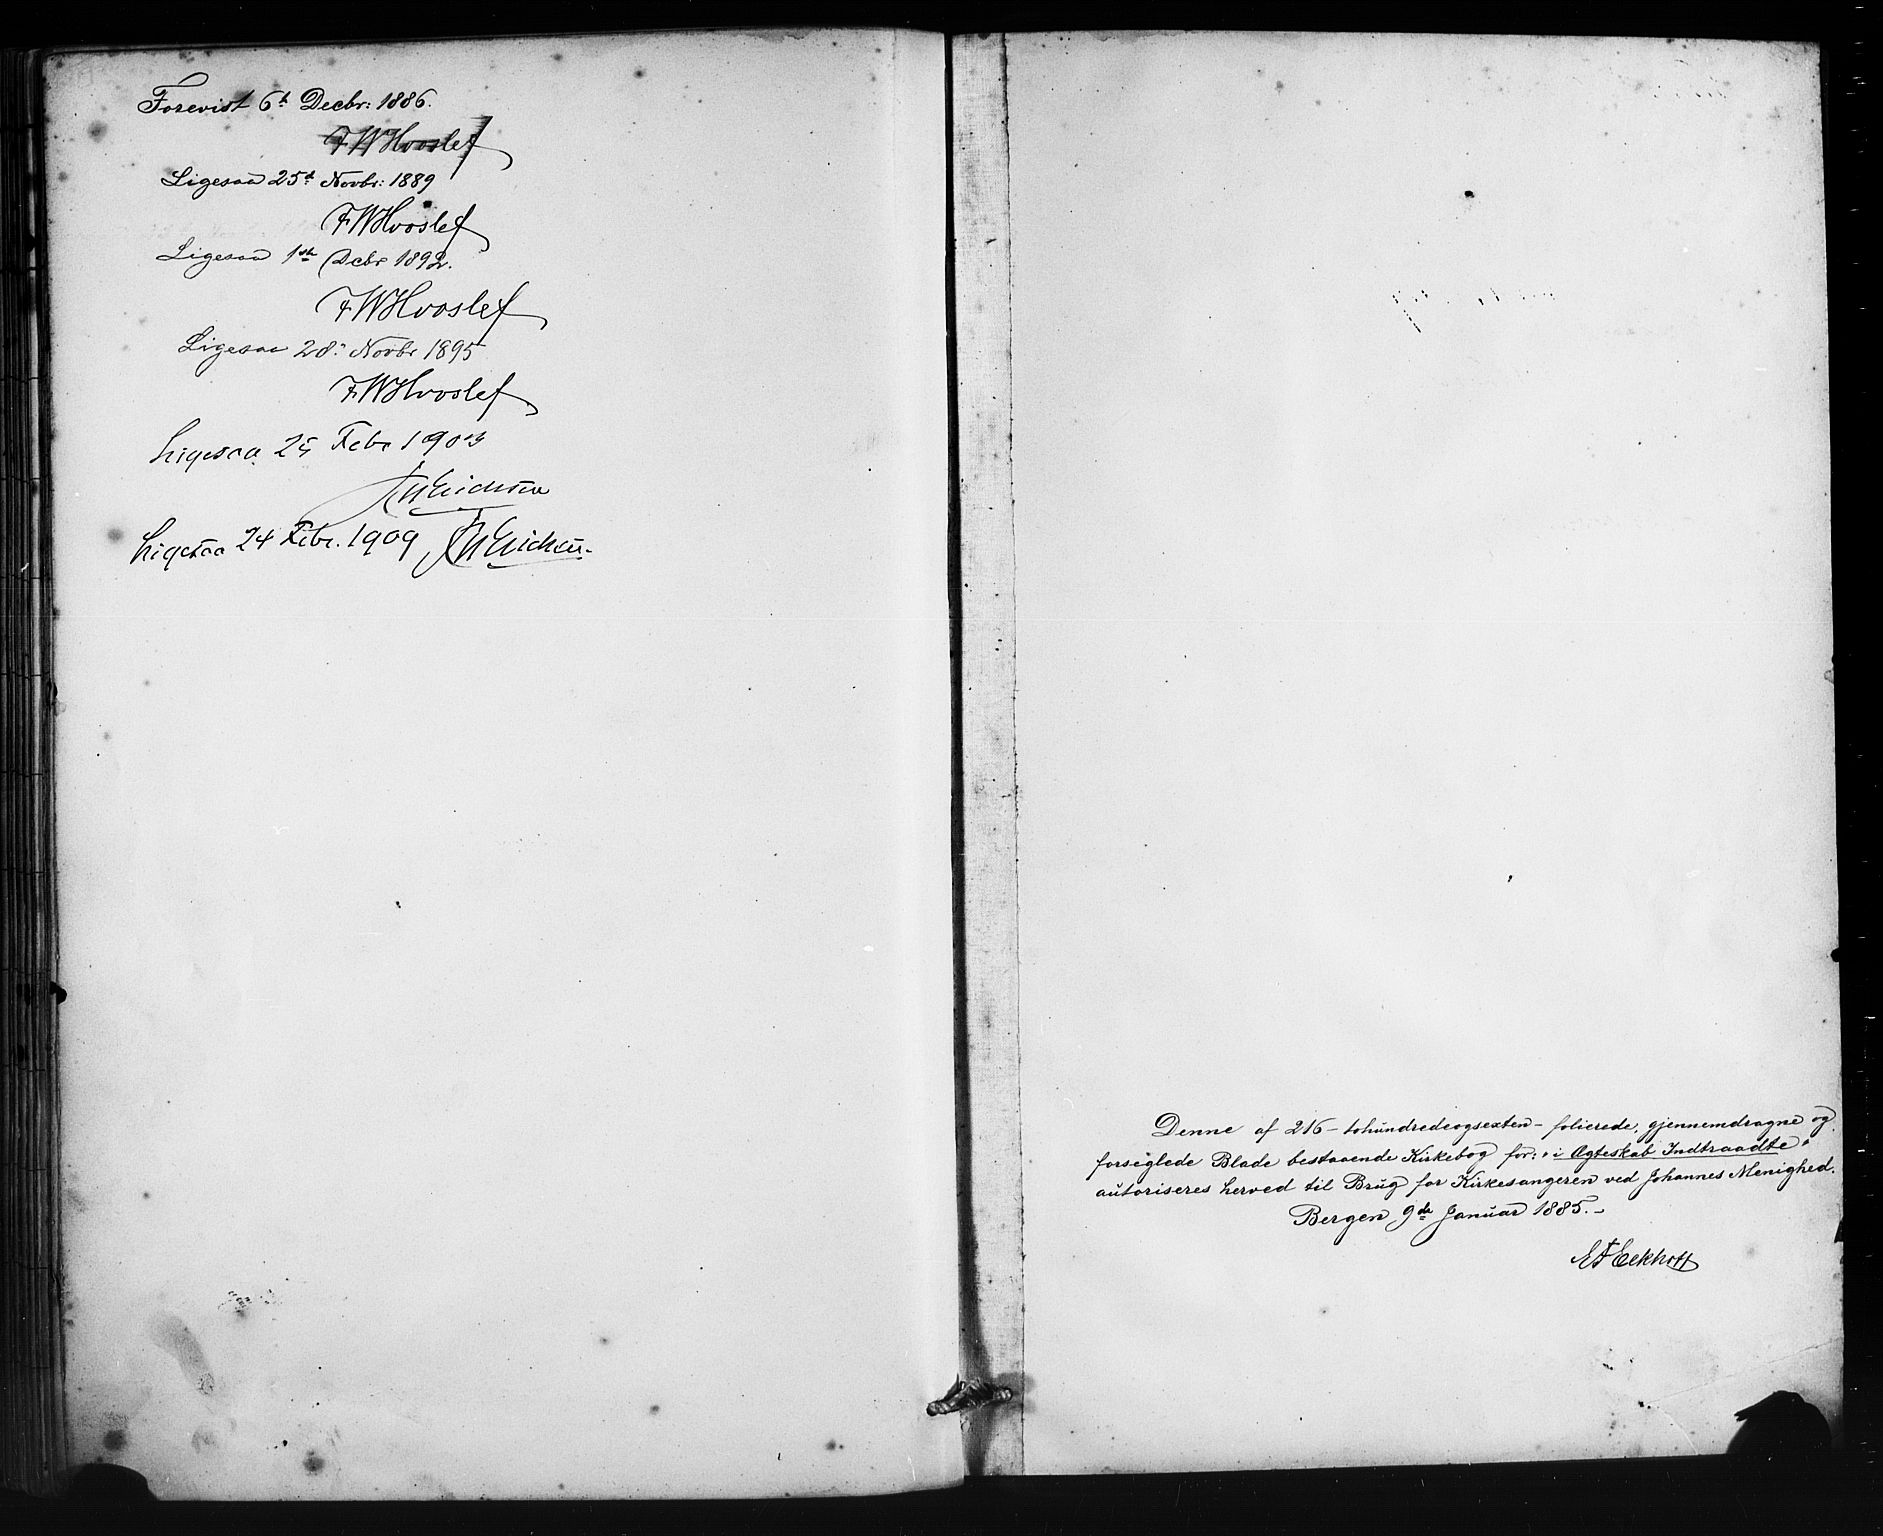 Forevist 6te Decbr: 1886.
FWHvoslef
Ligesaa 25d Novbr: 1889
FWHvoslef
Ligesaa 1ste Decbr 1892.
FWHvoslef
Ligesaa 28: Novbr 1895
FWHvoslef
Ligesaa 25 Febr 1903
Erichsen
Ligesaa 24 Febr. 1909 Erichsen.
Denne af 216 – tohundredeogsexten – folierede, gjennemdragne og
forseglede Blade bestaaende Kirkebog for: "i Ægteskab Indtraadte"
autoriseres herved til Brug for Kirkesangeren ved Johannes Menighed.
Bergen 9de Januar 1885.-
Eckhoff